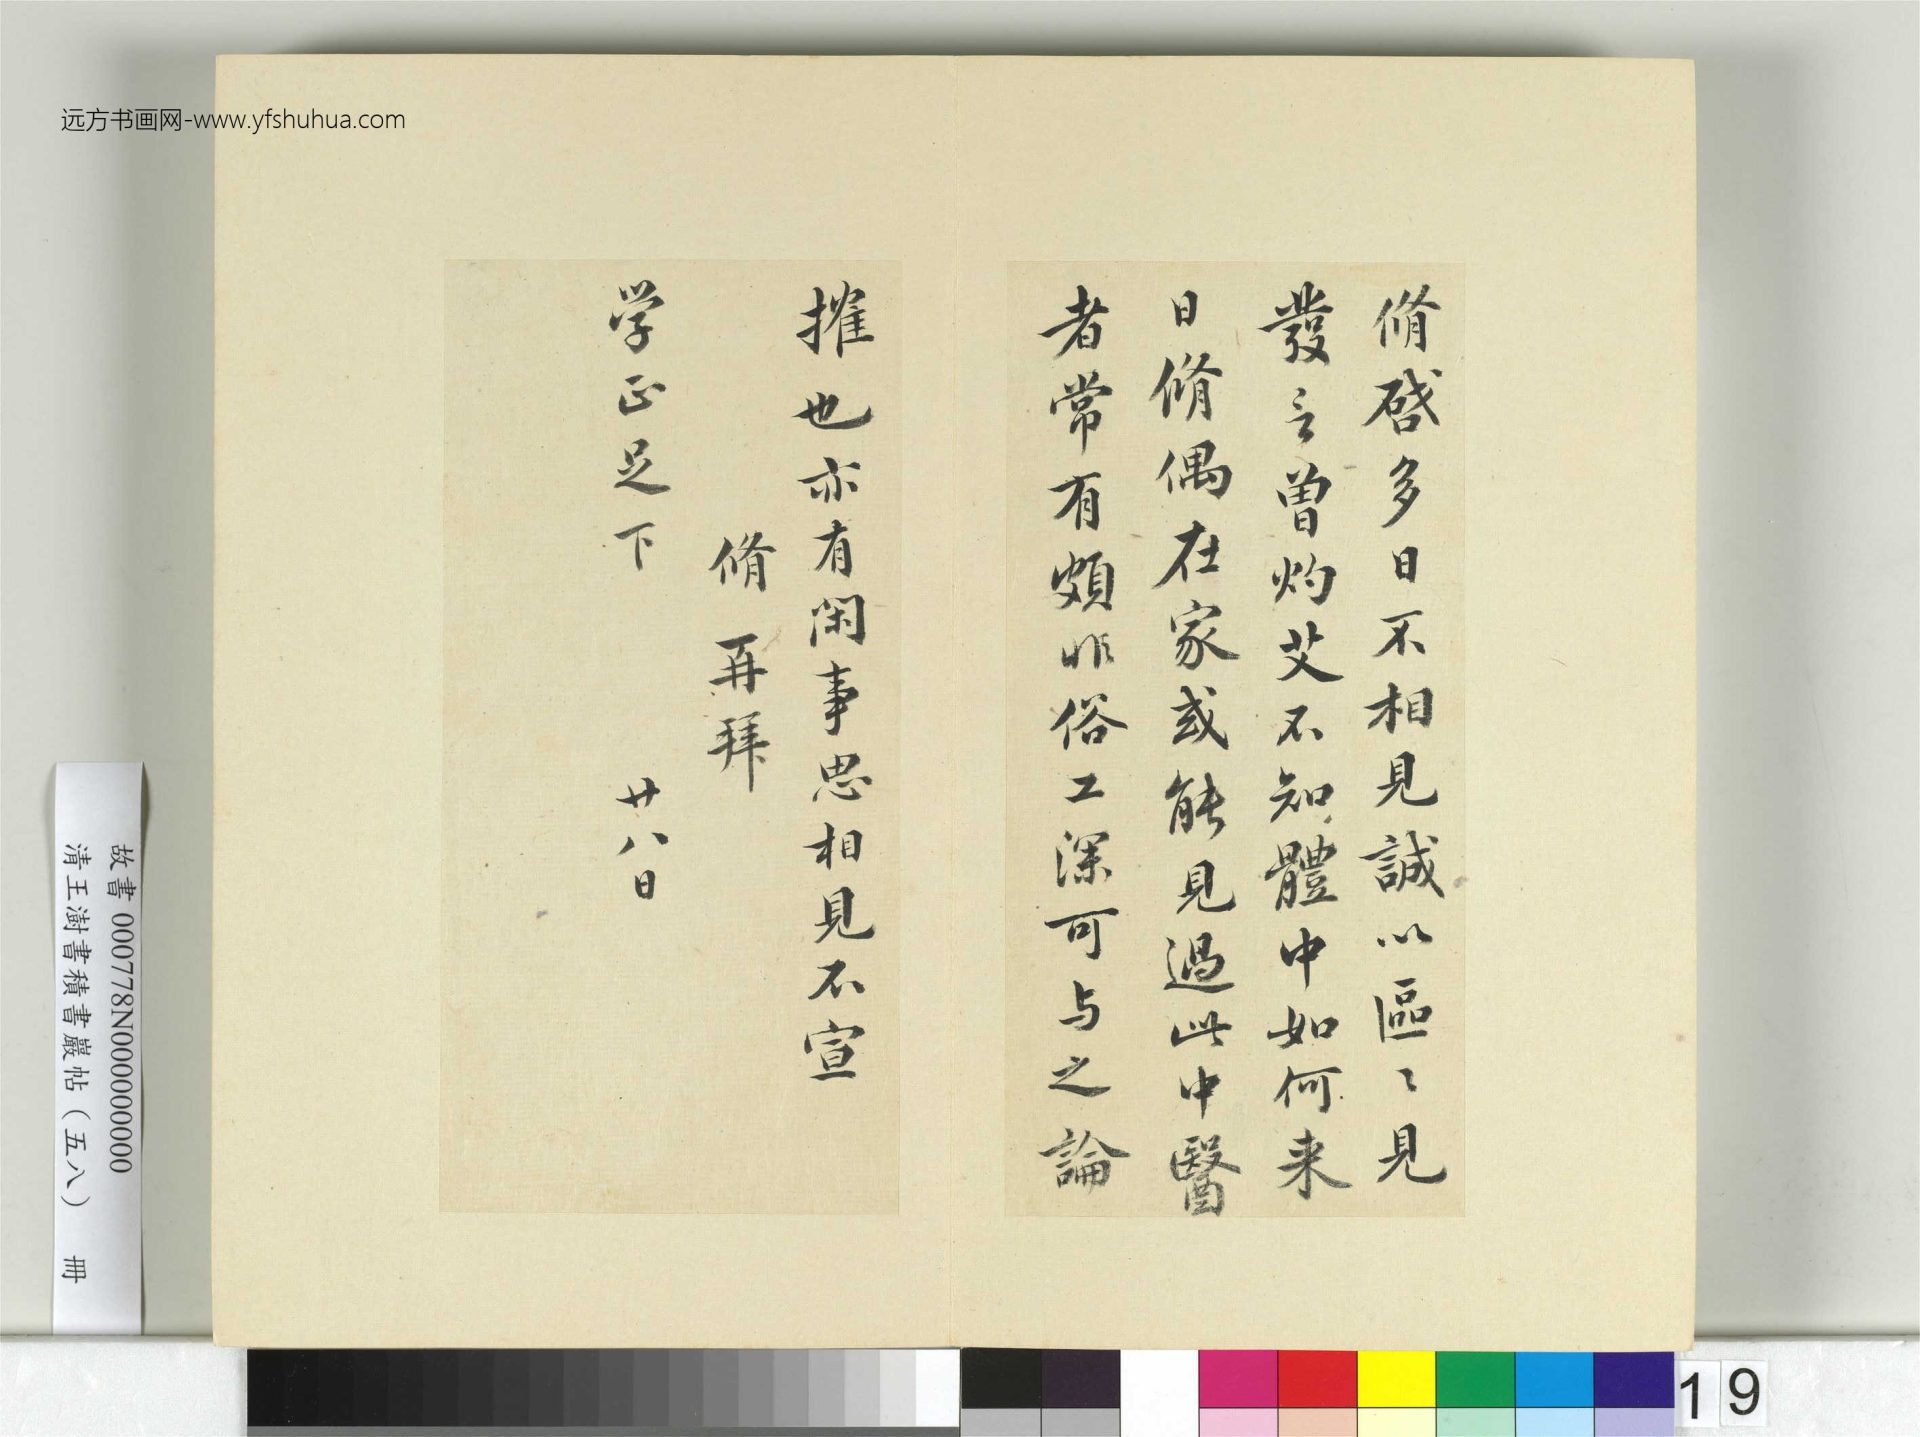 脩啓多日不相見誠以區〻見
發言曾灼艾不知體中如何来
日脩偶在家或能見過此中醫
者常有頗非俗工深可与之論
搉也亦有閑事思相見不宣
脩再拜
学正足下 廿八日
远方书画网-www.yfshuhua.com
故書 000778N000000000
清王澍書積書巖帖（五八） 冊
19